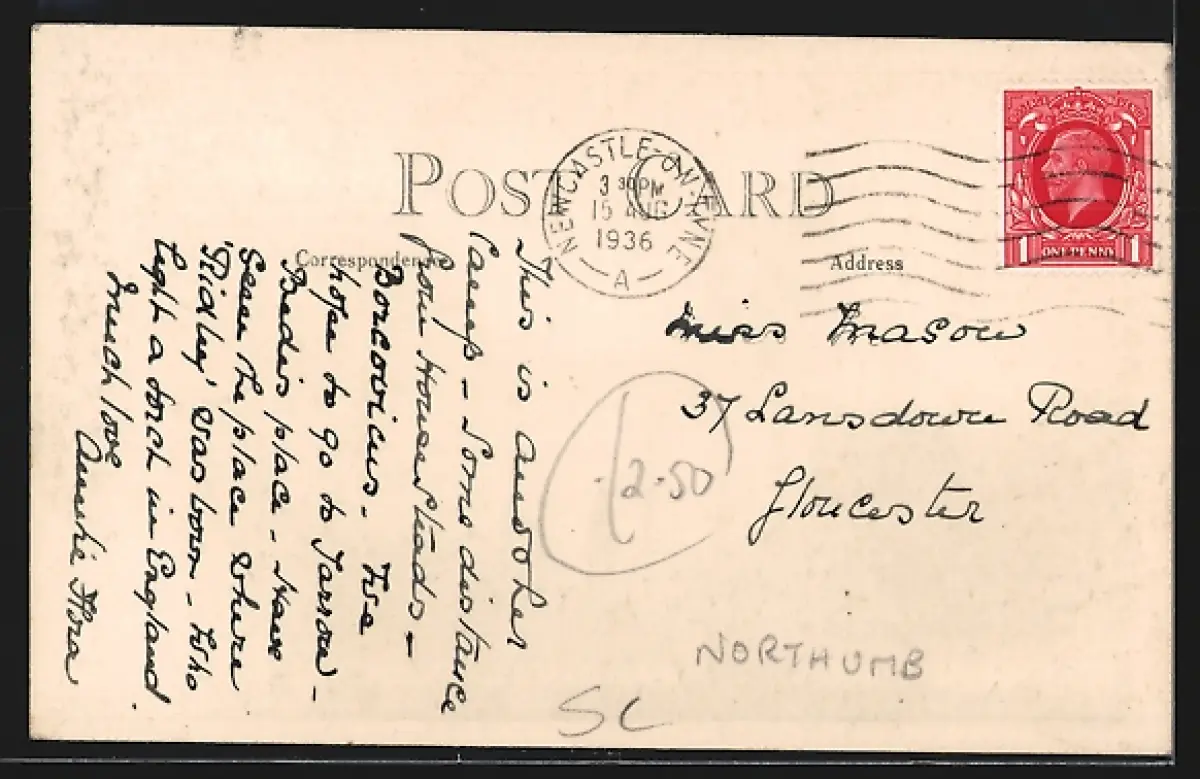 POST CARD
Correspondence
Address
NEWCASTLE-ON-TYNE
3 30 PM
15 AUG
1936
A
POSTAGE REVENUE
1 ONE PENNY 1
This is another
Camp - Some distance
from Housesteads -
Borcovicus. We
hope to go to Jarrow -
Bede's place - Have
seen the place where
'Ridley' was born - who
light a torch in England.
Much love
Auntie Flora
Miss Mason
37 Lansdown Road
Gloucester
2.50
NORTHUMB
SC